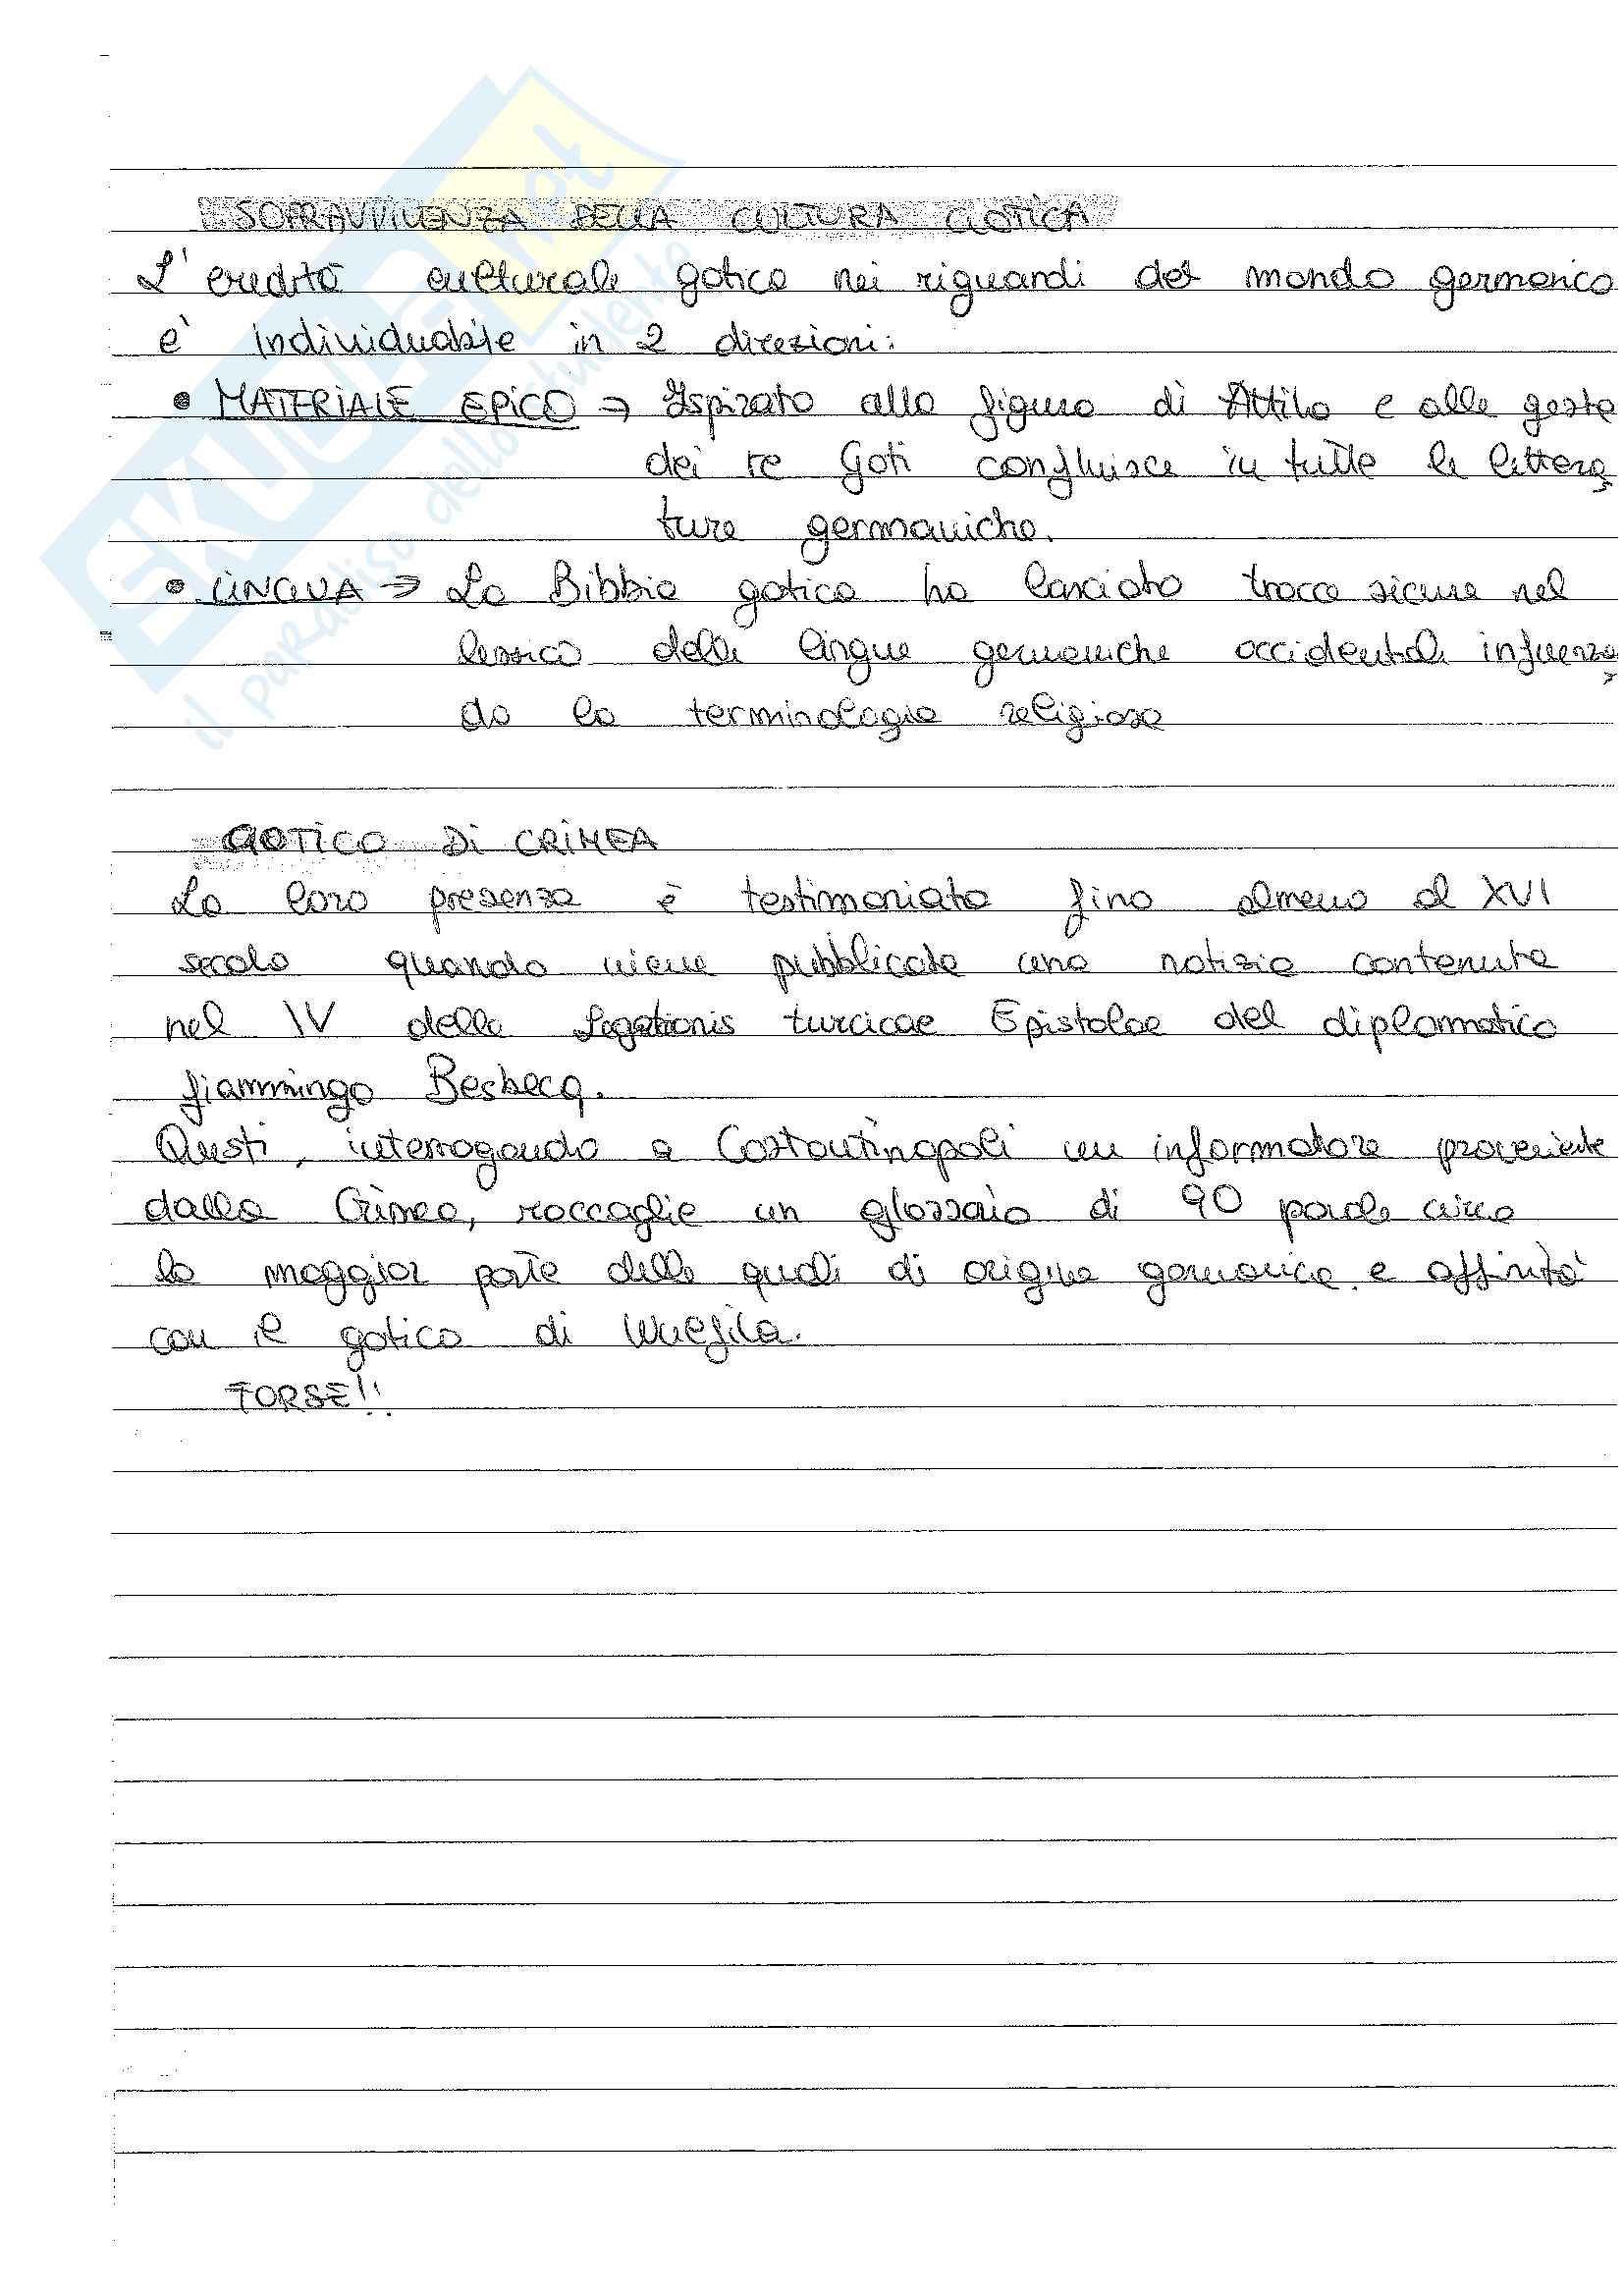 SOPRAVVIVENZA DELLA CULTURA GOTICA
L'eredità culturale gotica nei riguardi del mondo germanico
è individuabile in 2 direzioni:
• MATERIALE EPICO → Ispirato alla figura di Attila e alle gesta
dei re Goti confluisce in tutte le lettera
ture germaniche.
• LINGUA → La Bibbia gotica ha lasciato tracce sicure nel
lessico delle lingue germaniche occidentali influenzan
do la terminologia religiosa
GOTICO DI CRIMEA
La loro presenza è testimoniata fino almeno al XVI
secolo quando viene pubblicata una notizia contenuta
nel IV della Legationis turcicae Epistolae del diplomatico
fiammingo Besbecq.
Questi, interrogando a Costantinopoli un informatore proveniente
dalla Crimea, raccoglie un glossario di 90 parole circa
la maggior parte delle quali di origine germanica e affinità
con il gotico di Wulfila.
FORSE!!
SKUOLA.net
il paradiso dello studente